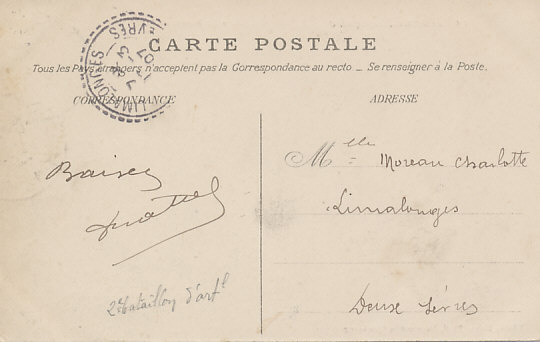 CARTE POSTALE
Tous les Pays étrangers n'acceptent pas la Correspondance au recto. _ Se renseigner à la Poste.
CORRESPONDANCE
ADRESSE
LIMALONGES
SÈVRES
07
Mlle = Moreau Charlotte
Limalonges
Deux Sèvres
Baisers
2e bataillon d'artie